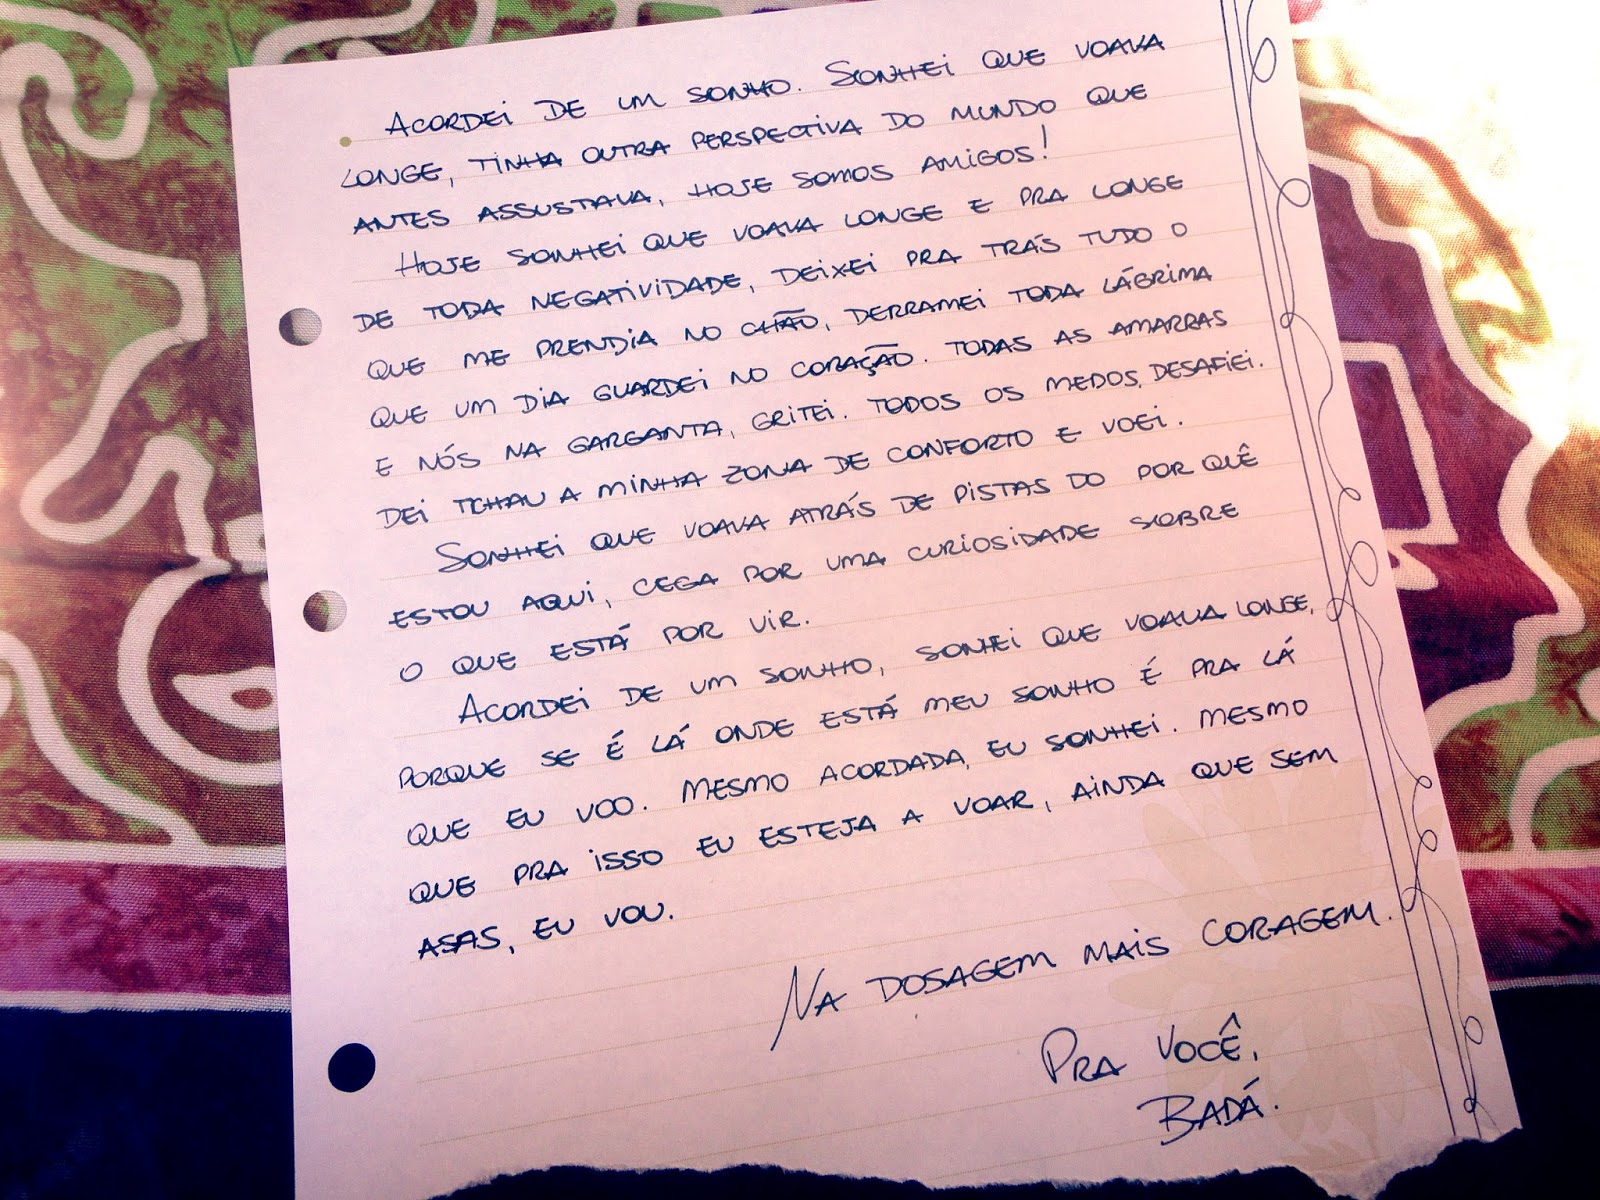 ACORDEI DE UM SONHO. SONHEI QUE VOAVA
LONGE, TINHA OUTRA PERSPECTIVA DO MUNDO QUE
ANTES ASSUSTAVA, HOJE SOMOS AMIGOS!
HOJE SONHEI QUE VOAVA LONGE E PRA LONGE
DE TODA NEGATIVIDADE, DEIXEI PRA TRÁS TUDO O
QUE ME PRENDIA NO CHÃO, DERRAMEI TODA LÁGRIMA
QUE UM DIA GUARDEI NO CORAÇÃO. TODAS AS AMARRAS
E NÓS NA GARGANTA, GRITEI. TODOS OS MEDOS, DESAFIEI.
DEI TCHAU A MINHA ZONA DE CONFORTO E VOEI.
SONHEI QUE VOAVA ATRÁS DE PISTAS DO POR QUÊ
ESTOU AQUI, CEGA POR UMA CURIOSIDADE SOBRE
O QUE ESTÁ POR VIR.
ACORDEI DE UM SONHO, SONHEI QUE VOAVA LONGE,
PORQUE SE É LÁ ONDE ESTÁ MEU SONHO É PRA LÁ
QUE EU VOO. MESMO ACORDADA, EU SONHEI. MESMO
QUE PRA ISSO EU ESTEJA A VOAR, AINDA QUE SEM
ASAS, EU VOU.
NA DOSAGEM MAIS CORAGEM.
PRA VOCÊ,
BADÁ.